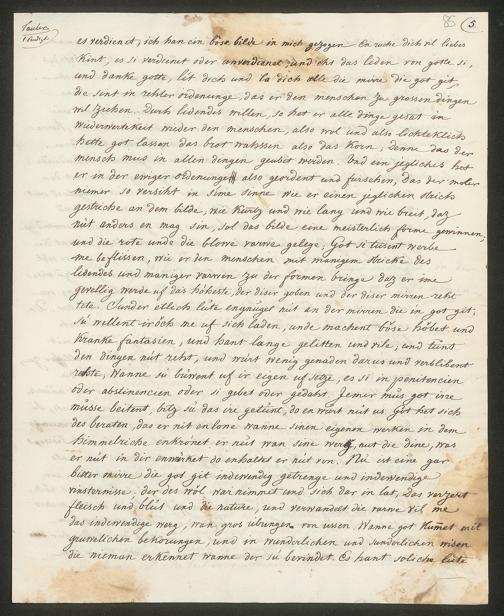 Tauler
1 Predigt
85 5
es verdienet, ich han ein böse bilde in mich gezogen. En ruche dich vil liebes
kint, es si verdienet oder unverdienet, und ehs das leden von gotte si,
und danke gotte, lit dich und la dich alle die mirre die got git,
die sint in rehter ordenunge, das er den menschen zu grossen dingen
wil ziehen. durh lidendes willen, so hat er alle dinge gesat in
wiederwertekeit wieder den menschen, also wol und also lichteklich
hette got lassen das brot wahssen also das korn, denne das der
mensch mus in allen dingen geubet werden. Und ein jegliches het
er in der ewiger ordenunge also geordent und fursehen, das der moler
niemer so versiht in sime sinne wie er einen jeglichen strich
gestriche an dem bilde, wie kurtz und wie lang und wie breit, daz
nüt anders en mag sin, sol das bilde eine meisterlich forme gewinnen,
und die rote unde die blowe varwe gelege, Got si tusent werbe
me beflissen, wie er den menschen mit manigem striche des
lidendes und maniger varwen zu der formen bringe daz er ime
gevellig werde uf das höheste, der diser goben und der diser mirren reht
tete. Sunder etlich lüte engnüget nüt an der mirren die in got git,
sü wellent iroch me uf sich laden, unde machent böse höbet und
kranke fantasien, und hant lange gelitten und vile, und tünt
den dingen nüt reht, und würt wenig genaden darus und verblibent
rehte, Wanne sü buwent uf ir eigen uf setze, es si penitencien
oder abstinencien oder si gebet oder gedaht. Jemer mus got ire
musse beitent, bitz sü das ire getunt, do en würt nüt us. Got het sich
des beraten, das er nit en lone wanne sinen eigenen werken in dem
himmelriche enkrönet er nüt wan sine werg, nüt die dine, was
er nüt in dir enwürket do enhaltet er nüt von. Nu ist eine gar
bitter mirre die got git indewendig getrenge und indewendige
vinsternisse, der des wol war nimmet und sich dar in lat, das verzert
fleisch und blüt und die nature, und verwandelt die varwe vil me
das indewendige werg, wan gros übungen von ussen. Wanne got kumet mit
gruwelichen bekorungen, und in wunderlichen und sunderlichen wisen
die nieman erkennet wanne der sü bevindet. Es hant soliche lüte